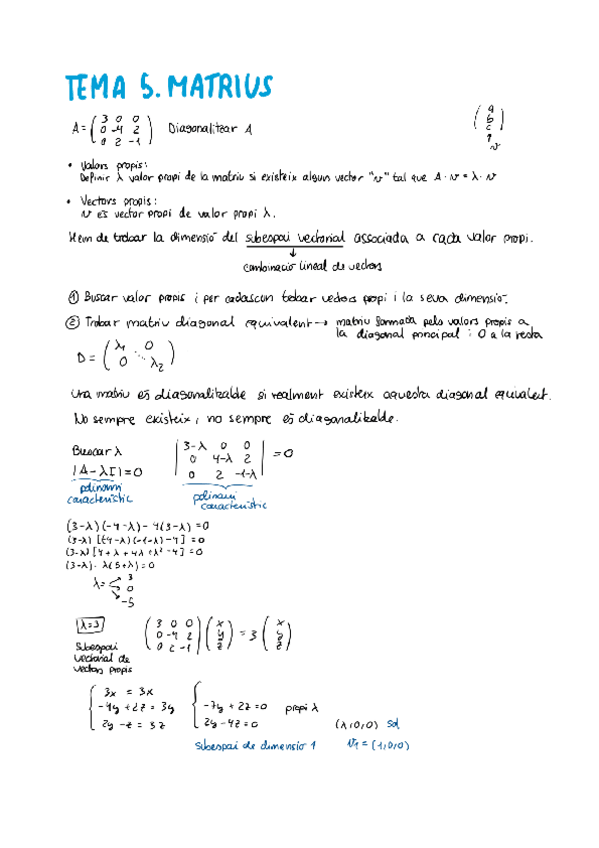 TEMA 5. MATRIUS
A = ( 3 0 0 / 0 -4 2 / 0 2 -1 ) Diagonalitzar A
( a b c
• Valors propis:
Definir λ valor propi de la matriu si existeix algun vector "v" tal que A · v = λ · v
• Vectors propis:
v és vector propi de valor propi λ.
Hem de trobar la dimensió del subespai vectorial associada a cada valor propi.
↓
combinació lineal de vectors
① Buscar valor propis i per cadascun trobar vectors propi i la seva dimensió.
② Trobar matriu diagonal equivalent → matriu formada pels valors propis a
la diagonal principal i 0 a la resta
D = ( λ1 0 / 0 ⋱ λ2 )
Una matriu és diagonalitzable si realment existeix aquesta diagonal equivalent.
No sempre existeix, no sempre és diagonalitzable.
Buscar λ
|A - λI| = 0
| 3-λ 0 0 / 0 4-λ 2 / 0 2 -1-λ | = 0
polinomi
característic
polinomi
característic
(3-λ)(-4-λ) - 4(3-λ) = 0
(3-λ) [(-4-λ)(-1-λ) - 4] = 0
(3-λ) [4 + λ + 4λ + λ² - 4] = 0
(3-λ) · λ(5+λ) = 0
λ = 3
0
-5
λ=3
( 3 0 0 / 0 -4 2 / 0 2 -1 ) ( x / y / z ) = 3 ( x / y / z )
Subespai
vectorial de
vectors propis
3x = 3x
-4y + 2z = 3y
2y - z = 3z
-7y + 2z = 0 propi λ
2y - 4z = 0
(λ,0,0) Sol
Subespai de dimensió 1 v1 = (1,0,0)